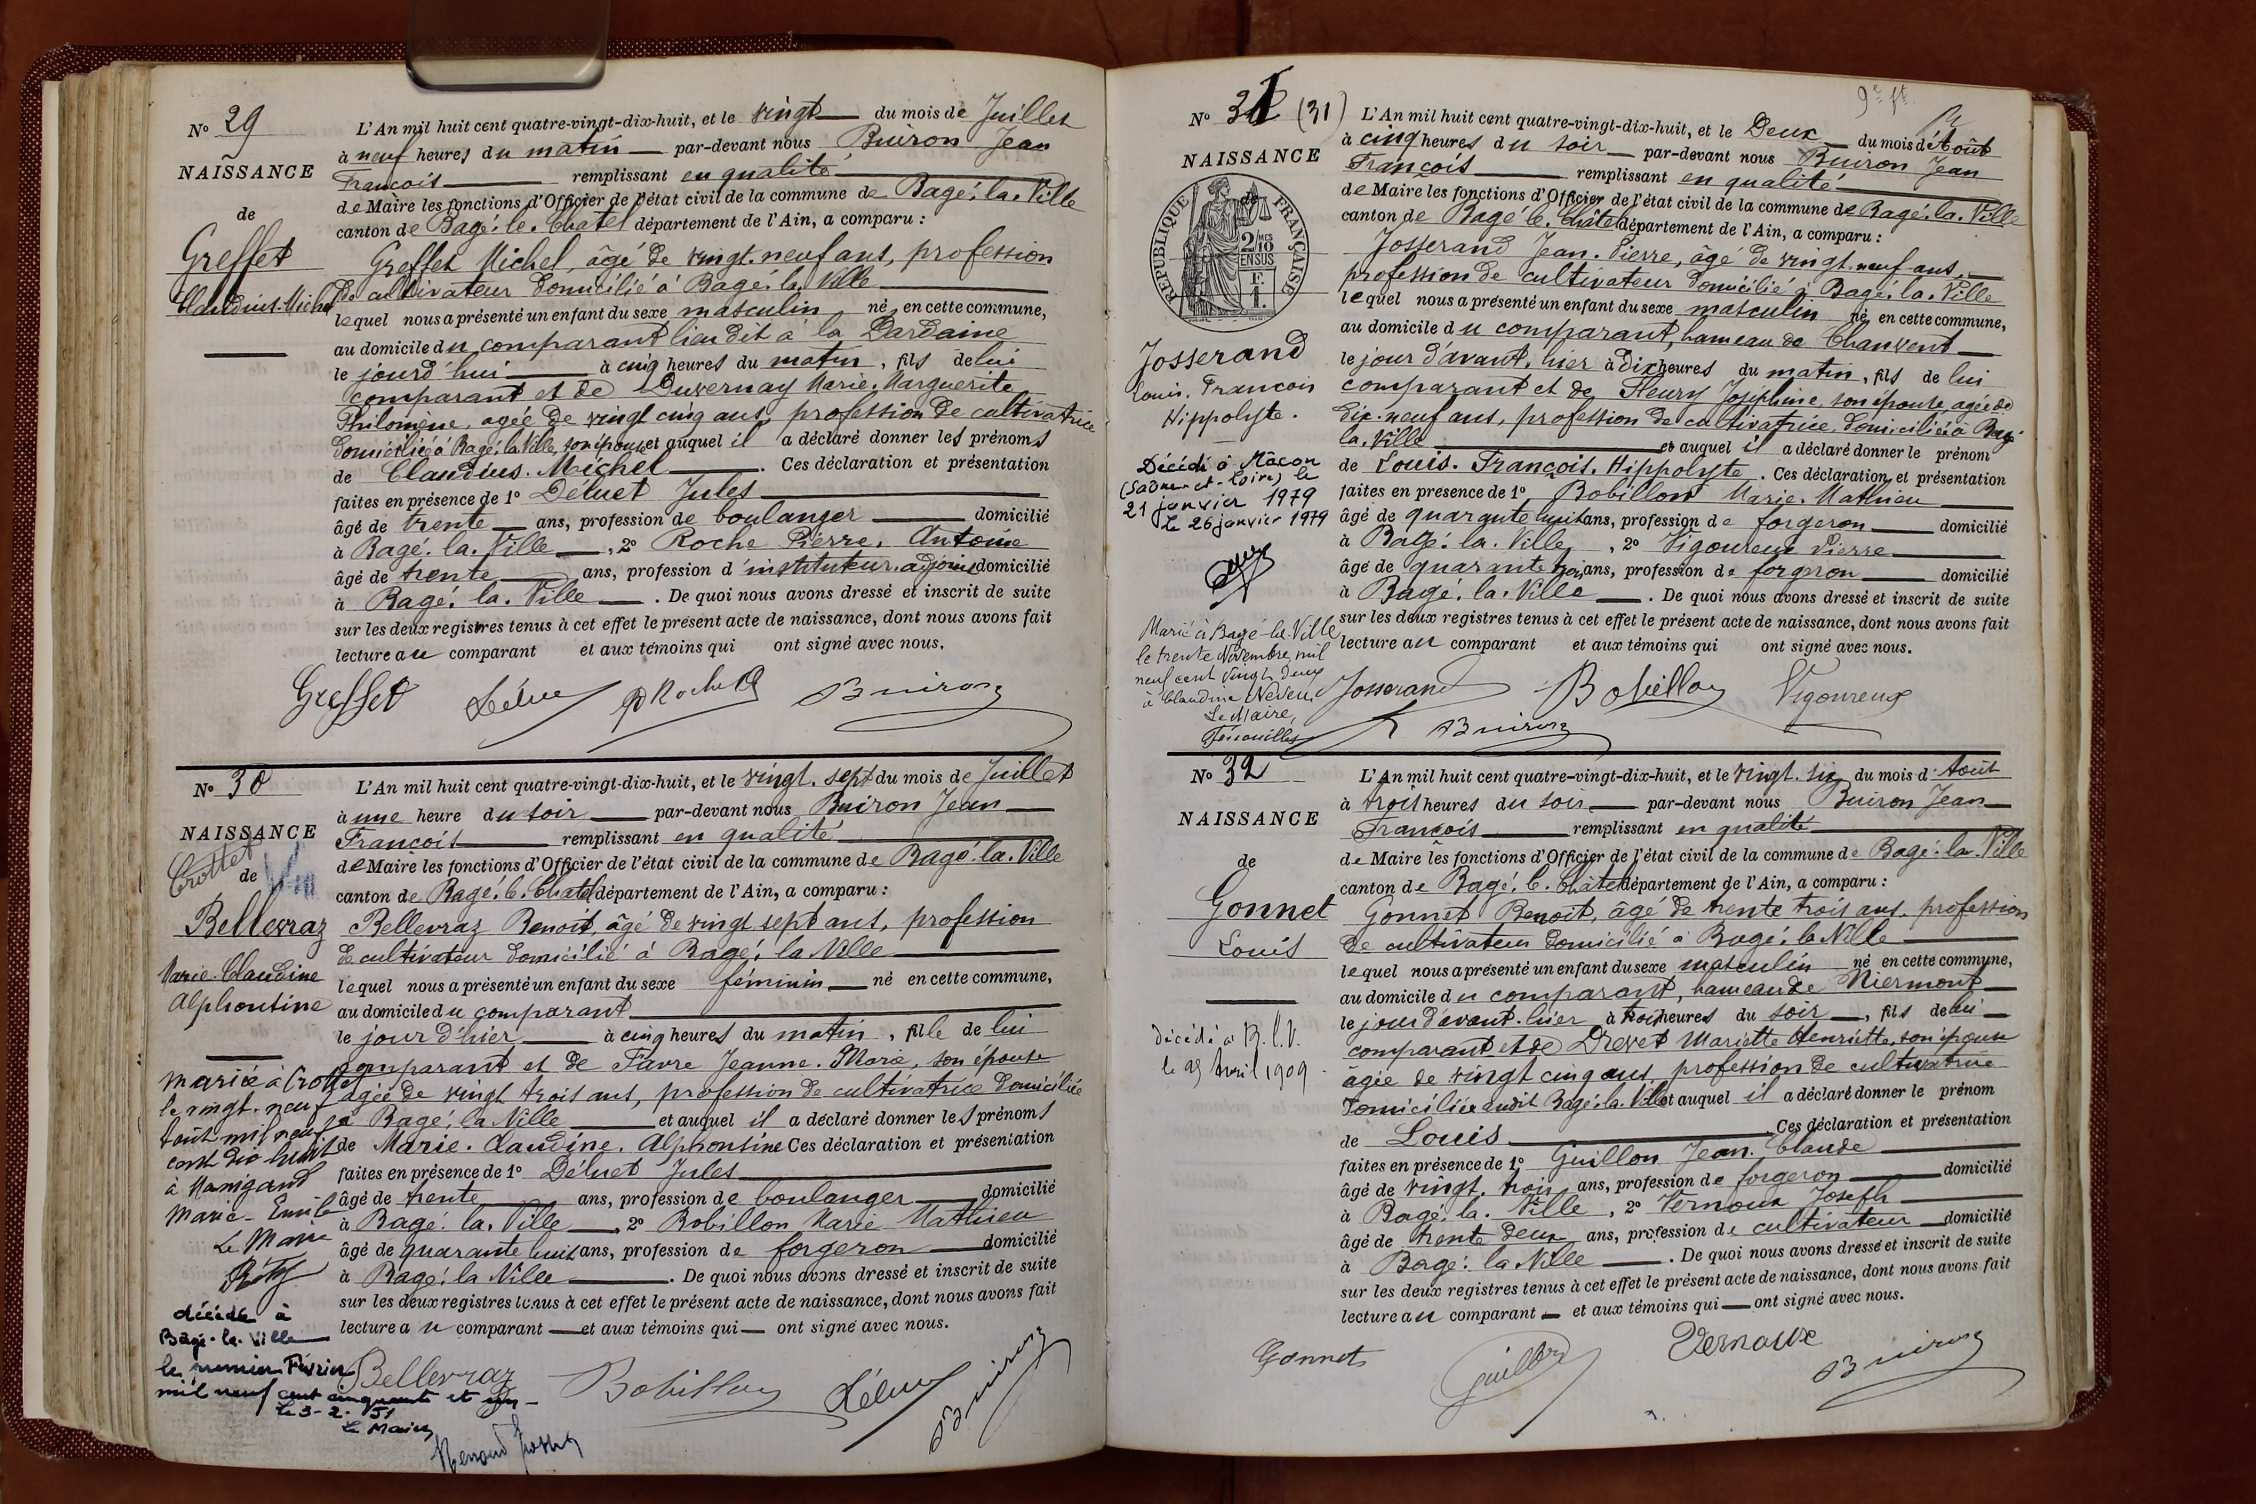 N° 29
NAISSANCE
de
Greffet
Claudius. Michel
L'An mil huit cent quatre-vingt-dix-huit, et le vingt du mois de Juillet
à neuf heures du matin par-devant nous Buiron Jean
François remplissant en qualité
de Maire les fonctions d'Officier de l'état civil de la commune de Bagé. la. Ville
canton de Bagé. le. Chatel département de l'Ain, a comparu :
Greffet Michel, âgé de vingt. neuf ans, profession
de cultivateur domicilié à Bagé. la Ville
lequel nous a présenté un enfant du sexe masculin né en cette commune,
au domicile du comparant lieu dit à la Dardaine
le jourd'hui à cinq heures du matin, fils de lui
comparant et de Duvernay Marie. Marguerite
Philomène, agée de vingt cinq ans, profession de cultivatrice
domiciliée à Bagé. la Ville, son épouse et auquel il a déclaré donner les prénoms
de Claudius. Michel. Ces déclaration et présentation
faites en présence de 1° Déluet Jules
âgé de trente ans, profession de boulanger domicilié
à Bagé. la. Ville, 2° Roche Pierre. Antoine
âgé de trente ans, profession d'instituteur. adjoint domicilié
à Bagé. la. Ville. De quoi nous avons dressé et inscrit de suite
sur les deux registres tenus à cet effet le présent acte de naissance, dont nous avons fait
lecture au comparant et aux témoins qui ont signé avec nous.
Greffet Déluet Roche Buiron
N° 30
NAISSANCE
Crottet
de
Bellevraz
Marie. Claudine
Alphonsine
mariée à Crottet
le vingt. neuf
août mil neuf
cent dix huit
à Mangand
Marie - Emile
Le Maire
décédée à
Bâgé-la-Ville
le premier Février
mil neuf cent cinquante et un
le 3-2-51
Le Maire
L'An mil huit cent quatre-vingt-dix-huit, et le vingt. sept du mois de Juillet
à une heure du soir par-devant nous Buiron Jean
François remplissant en qualité
de Maire les fonctions d'Officier de l'état civil de la commune de Bagé. la. Ville
canton de Bagé. le. Chatel département de l'Ain, a comparu :
Bellevraz Benoit, âgé de vingt sept ans, profession
de cultivateur domicilié à Bagé. la Ville
lequel nous a présenté un enfant du sexe féminin né en cette commune,
au domicile du comparant
le jour d'hier à cinq heures du matin, fille de lui
comparant et de Favre Jeanne. Marie, son épouse
agée de vingt trois ans, profession de cultivatrice domiciliée
à Bagé. la Ville et auquel il a déclaré donner les prénoms
de Marie. Claudine. Alphonsine Ces déclaration et présentation
faites en présence de 1° Déluet Jules
âgé de trente ans, profession de boulanger domicilié
à Bagé. la. Ville, 2° Bobillon Marie Mathieu
âgé de quarante huit ans, profession de forgeron domicilié
à Bagé. la Ville. De quoi nous avons dressé et inscrit de suite
sur les deux registres tenus à cet effet le présent acte de naissance, dont nous avons fait
lecture au comparant et aux témoins qui ont signé avec nous.
Bellevraz Bobillon Déluet Buiron
N° 31 (31)
NAISSANCE
de
RÉPUBLIQUE FRANÇAISE
2/10 MES
EN SUS
F.
1.
Josserand
Louis. François
Hippolyte.
Décédé à Mâcon
(Saône-et-Loire) le
21 janvier 1979
Le 26 janvier 1979
Marié à Bagé-la-Ville
le trente Novembre mil
neuf cent vingt deux
à Claudine Neveu
Le Maire,
L'An mil huit cent quatre-vingt-dix-huit, et le Deux du mois d'Août
à cinq heures du soir par-devant nous Buiron Jean
François remplissant en qualité
de Maire les fonctions d'Officier de l'état civil de la commune de Bagé. la. Ville
canton de Bagé. le. Châtel département de l'Ain, a comparu :
Josserand Jean. Pierre, âgé de vingt. neuf ans,
profession de cultivateur domicilié à Bagé. la. Ville
lequel nous a présenté un enfant du sexe masculin né en cette commune,
au domicile du comparant, hameau de Chanvent
le jour d'avant. hier à Dix heures du matin, fils de lui
comparant et de Fleury Joséphine, son épouse, agée de
dix. neuf ans, profession de cultivatrice domiciliée à Bagé.
la. Ville et auquel il a déclaré donner le prénom
de Louis. François. Hippolyte. Ces déclaration et présentation
faites en présence de 1° Bobillon Marie. Mathieu
âgé de quarante huit ans, profession de forgeron domicilié
à Bagé. la. Ville, 2° Vigoureux Pierre
âgé de quarante trois ans, profession de forgeron domicilié
à Bagé. la. Ville. De quoi nous avons dressé et inscrit de suite
sur les deux registres tenus à cet effet le présent acte de naissance, dont nous avons fait
lecture au comparant et aux témoins qui ont signé avec nous.
Josserand Bobillon Vigoureux
Buiron
N° 32
NAISSANCE
de
Gonnet
Louis
décédé à B.l.V.
le 25 Avril 1909
L'An mil huit cent quatre-vingt-dix-huit, et le vingt. six du mois d'Août
à trois heures du soir par-devant nous Buiron Jean
François remplissant en qualité
de Maire les fonctions d'Officier de l'état civil de la commune de Bagé. la. Ville
canton de Bagé. le. Châtel département de l'Ain, a comparu :
Gonnet Benoit, âgé de trente trois ans, profession
de cultivateur domicilié à Bagé. la Ville
lequel nous a présenté un enfant du sexe masculin né en cette commune,
au domicile du comparant, hameau de Niermont
le jour d'avant. hier à trois heures du soir, fils de lui
comparant et de Drevet Mariette Henriette, son épouse
âgée de vingt cinq ans, profession de cultivatrice
domiciliée audit Bagé. la. Ville et auquel il a déclaré donner le prénom
de Louis Ces déclaration et présentation
faites en présence de 1° Guillon Jean. Claude
âgé de vingt. trois ans, profession de forgeron domicilié
à Bagé. la. Ville, 2° Vernoux Joseph
âgé de trente deux ans, profession de cultivateur domicilié
à Bagé. la Ville. De quoi nous avons dressé et inscrit de suite
sur les deux registres tenus à cet effet le présent acte de naissance, dont nous avons fait
lecture au comparant et aux témoins qui ont signé avec nous.
Gonnet Guillon Vernoux Buiron